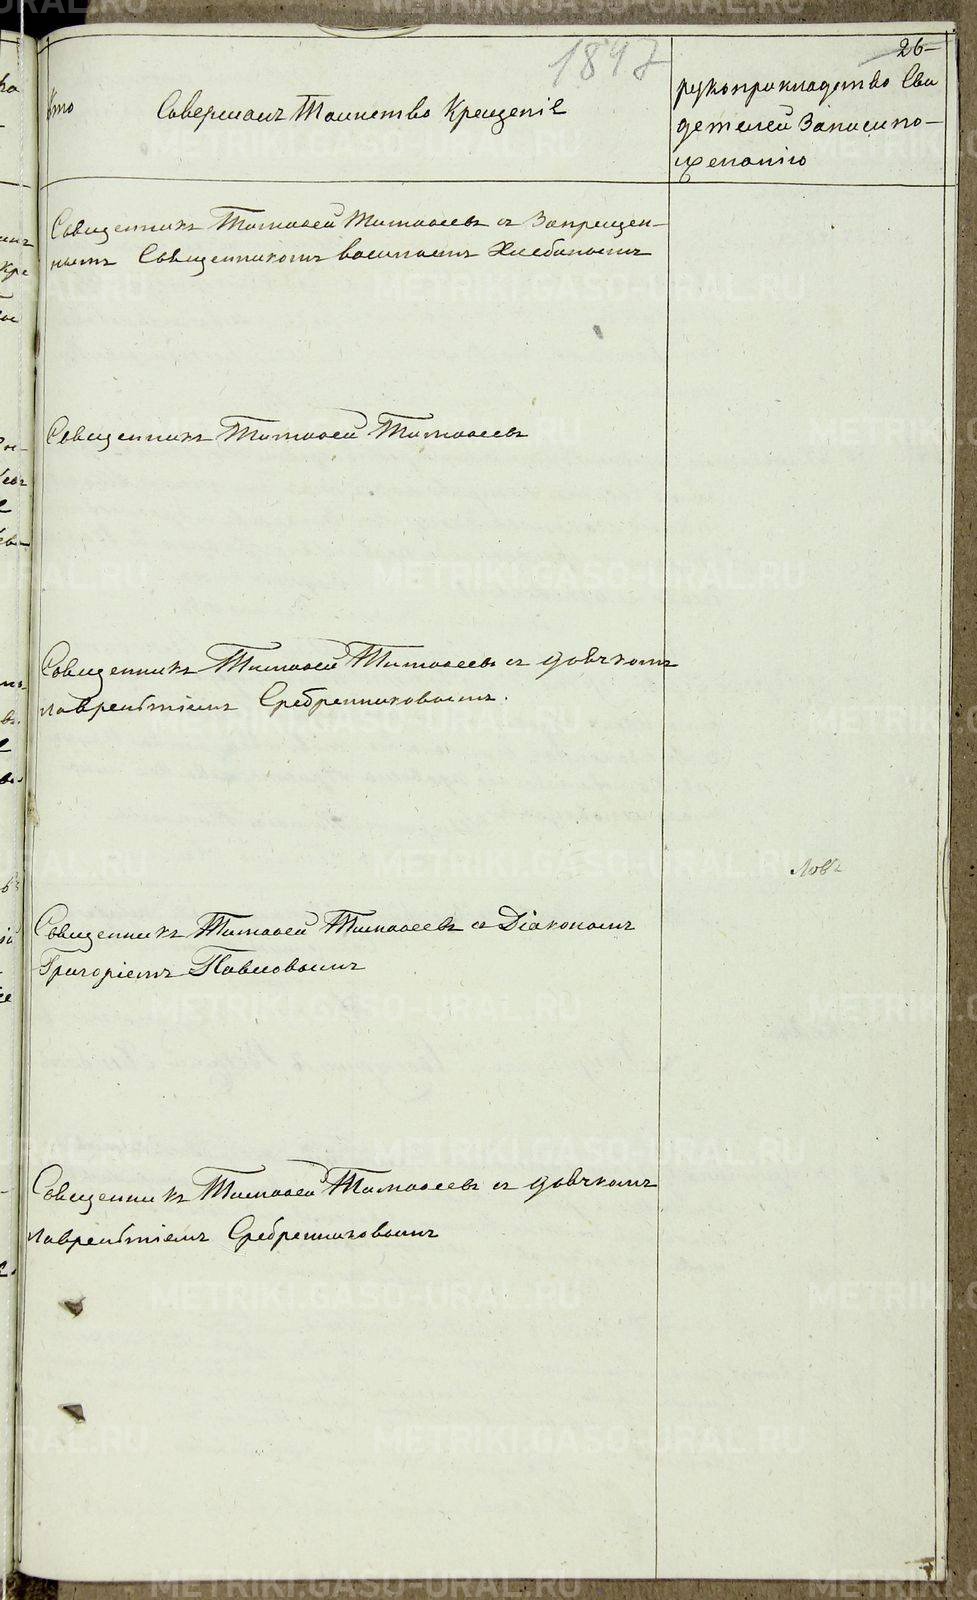 1847
26
Кто Совершалъ Таинство Крещенiе
рукоприкладство Сви
детелей Записи по
желанiю
Священникъ Тимофей Тимофеевъ съ Запрещен-
нымъ Священникомъ Василиемъ Хлебинымъ
Священникъ Тимофей Тимофеевъ
Священникъ Тимофей Тимофеевъ съ дьячкомъ
лаврентiемъ Сребренниковымъ.
ловъ
Священникъ Тимофей Тимофеевъ съ Дiакономъ
Григорiемъ Павловымъ
Священникъ Тимофей Тимофеевъ съ дьячкомъ
лаврентiемъ Сребренниковымъ
METRIKI.GASO-URAL.RU